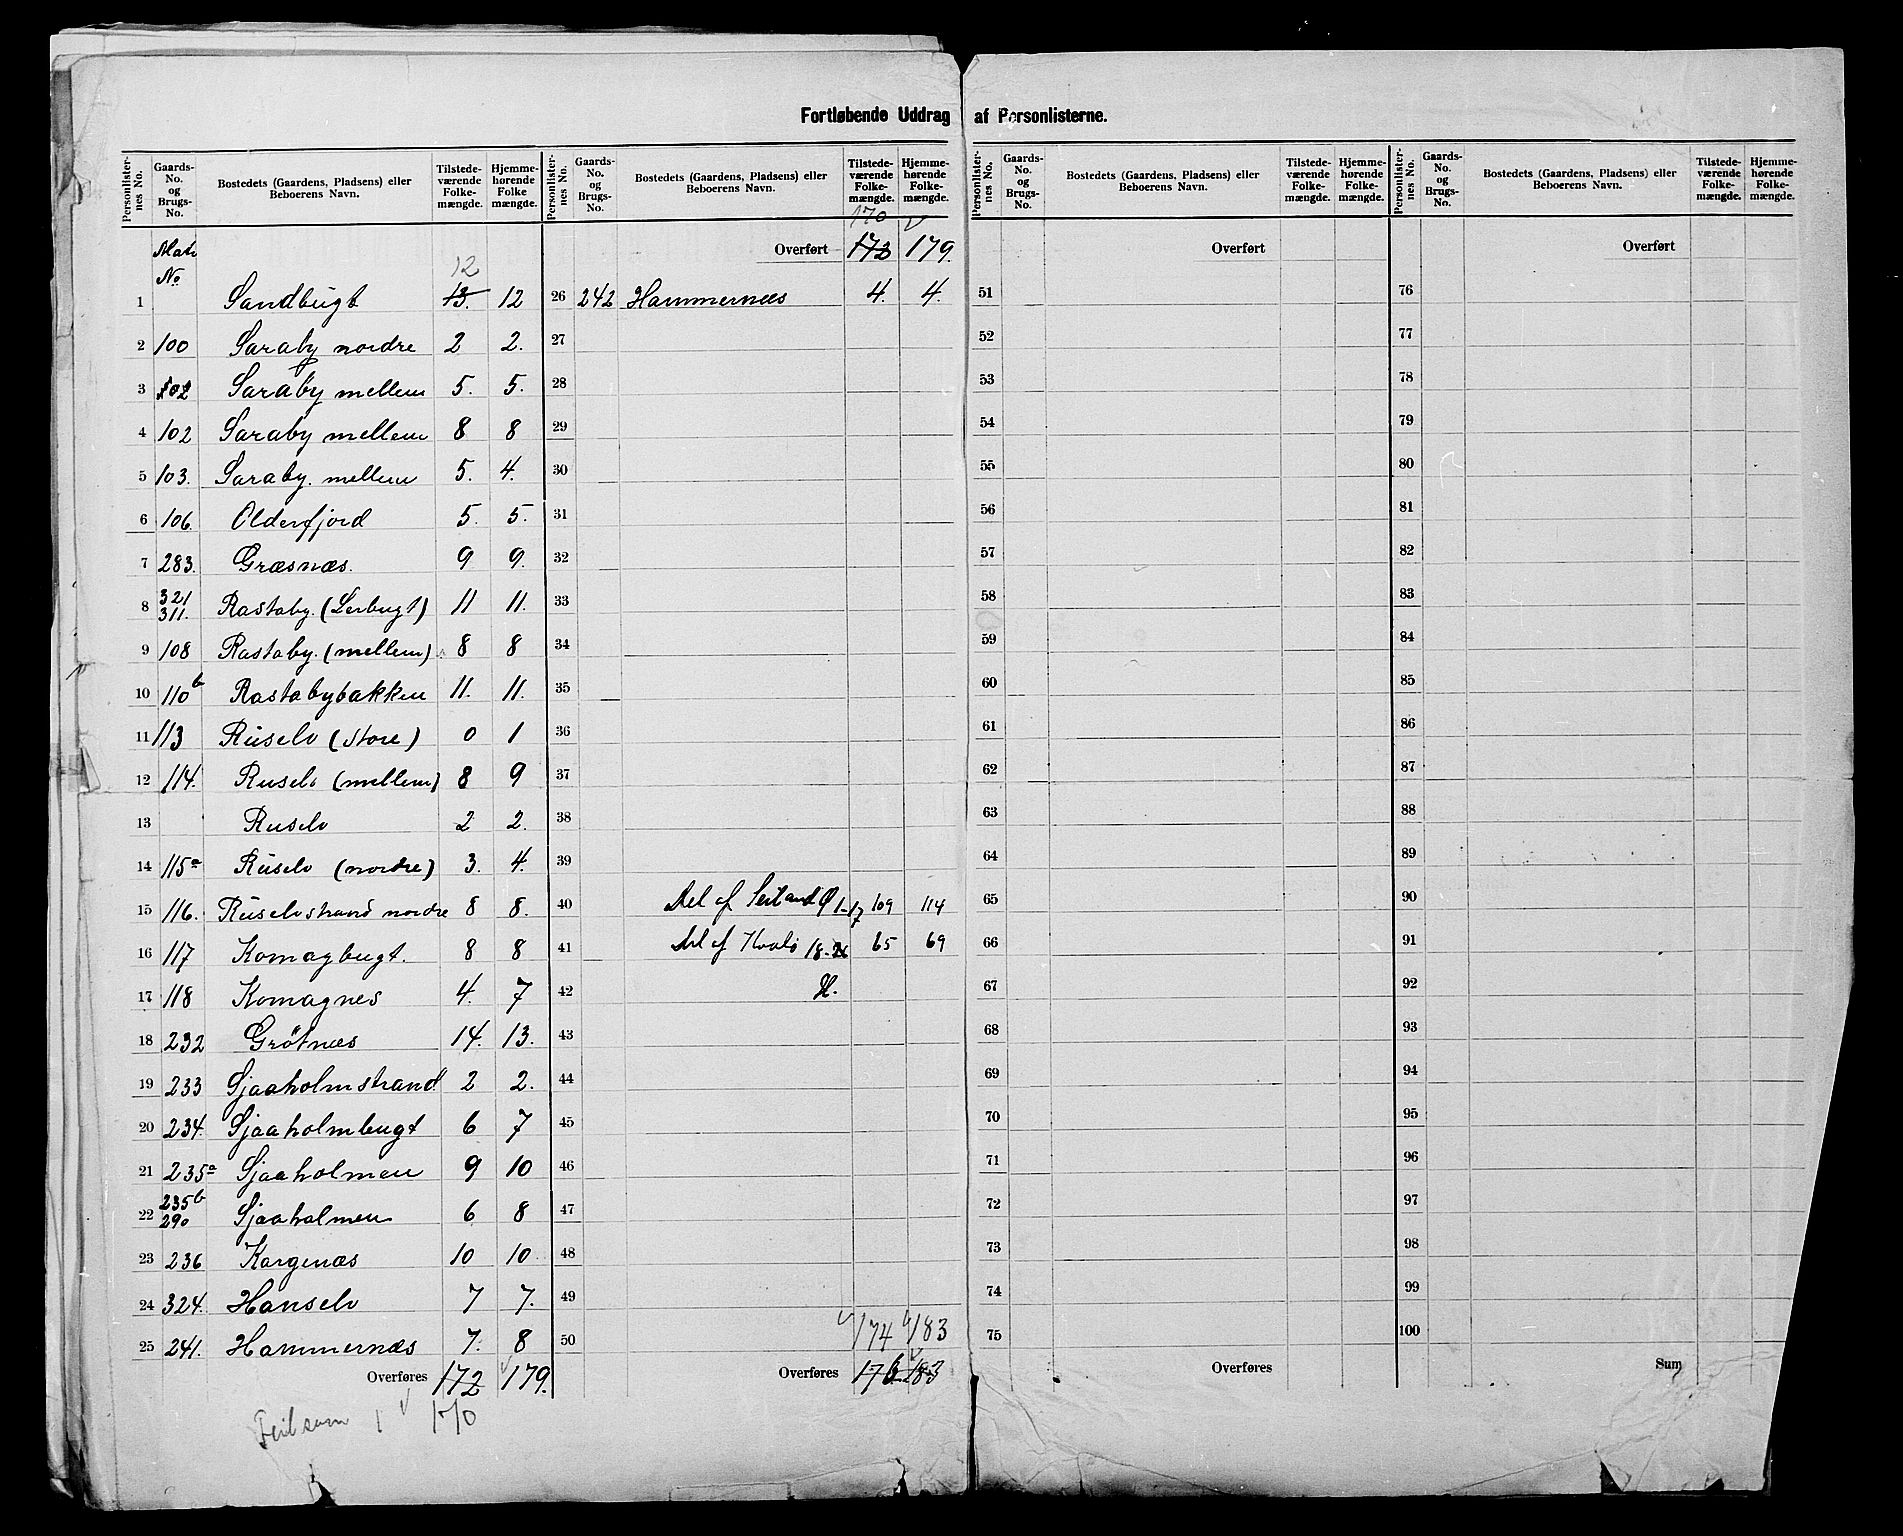 Fortløbende Uddrag af Personlisterne.
Personlister-nes No. | Gaards-No. og Brugs-No. | Bostedets (Gaardens, Pladsens) eller Beboerens Navn. | Tilstede-værende Folke-mængde. | Hjemme-hørende Folke mængde.
Matr No
12
1 Sandbugt 13. 12
2 100 Saraby nordre 2 2.
3 102 Saraby mellem 5. 5.
4 102 Saraby mellem 8 8
5 103. Saraby. mellem 5. 4.
6 106. Olderfjord 5. 5.
7 283. Græsnæs. 9 9.
8 321 311. Rastaby. (Lerbugt) 11 11.
9 108 Rastaby. (mellem) 8 8
10 110b Rastabybakken 11. 11.
11 113 Ruselv (store) 0 1
12 114. Ruselv (mellem) 8 9
13 Ruselv 2 2.
14 115a Ruselv (nordre) 3. 4.
15 116. Ruselvstrand nordre 8 8.
16 117 Komagbugt. 8 8
17 118 Komagnes 4. 7
18 232 Grötnæs 14. 13.
19 233 Sjaaholmstrand 2 2.
20 234. Sjaaholmbugt 6 7
21 235a Sjaaholmen 9 10
22 235b 290 Sjaaholmen 6 8
23 236 Kargenæs 10 10
24 324. Hanselv 7 7.
25 241. Hammernæs 7. 8
Overføres 172 179.
Feilsum 1 170
Personlister-nes No. | Gaards-No. og Brugs-No. | Bostedets (Gaardens, Pladsens) eller Beboerens Navn. | Tilstede-værende Folke-mængde. | Hjemme-hørende Folke-mængde.
170
Overført 172 179.
26 242 Hammernæs 4. 4.
27
28
29
30
31
32
33
34
35
36
37
38
39
40 Del af Seiland Ø 1-17 109 114
41 Del af Kvalø 18-26 65 69
42 H.
43
44
45
46
47
48
49
50 174 183
Overføres 176 183
Personlister-nes No. | Gaards-No. og Brugs-No. | Bostedets (Gaardens, Pladsens) eller Beboerens Navn. | Tilstede-værende Folke-mængde. | Hjemme-hørende Folke-mængde.
Overført
51
52
53
54
55
56
57
58
59
60
61
62
63
64
65
66
67
68
69
70
71
72
73
74
75
Overføres
Personlister-nes No. | Gaards-No. og Brugs-No. | Bostedets (Gaardens, Pladsens) eller Beboerens Navn. | Tilstede-værende Folke-mængde. | Hjemme-hørende Folke-mængde.
Overført
76
77
78
79
80
81
82
83
84
85
86
87
88
89
90
91
92
93
94
95
96
97
98
99
100
Sum